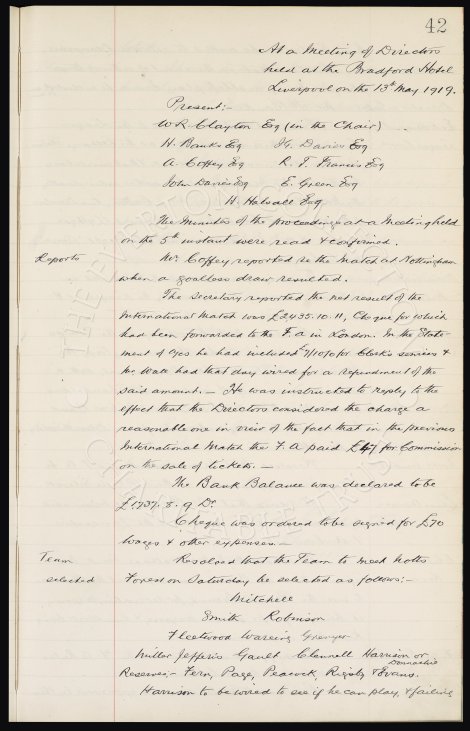 42
At a Meeting of Directors
held at the Bradford Hotel
Liverpool on the 13th May 1919.
Present:-
W.R. Clayton Esq (in the Chair)
H. Banks Esq
A. Coffey Esq R. T. Francis Esq
John Davies Esq E. Green Esq
H. Halsall Esq
The Minutes of the proceedings at a Meeting held
on the 5th instant were read & confirmed.
Reports
Mr. Coffey reported re the match at Nottingham
when a goalless draw resulted.
The Secretary reported the net result of the
International Match was £2435.10.11, Cheque for which
had been forwarded to the F.A in London. In the State-
ment of he had included for Clerk's services &
Mr. Wall had that day wired for a refundment of the
said amount. - He was instructed to reply to the
effect that the Directors considered the charge a
reasonable one in view of the fact that in the previous
International Match the F.A paid £47 for Commission
on the sale of tickets. -
The Bank Balance was declared to be
Dr.
Cheque was ordered to be signed for £70
wages & other expenses. -
Team
selected
Resolved that the Team to meet Notts
Forest on Saturday be selected as follows:-
Mitchell
Smith Robinson
Fleetwood Wareing Grenyer
Miller Jefferis Gault Clennell Harrison or
Donnachie
Reserves:- Fern, Page, Peacock, Rigsby & Evans.
Harrison to be wired to see if he can play, & failing